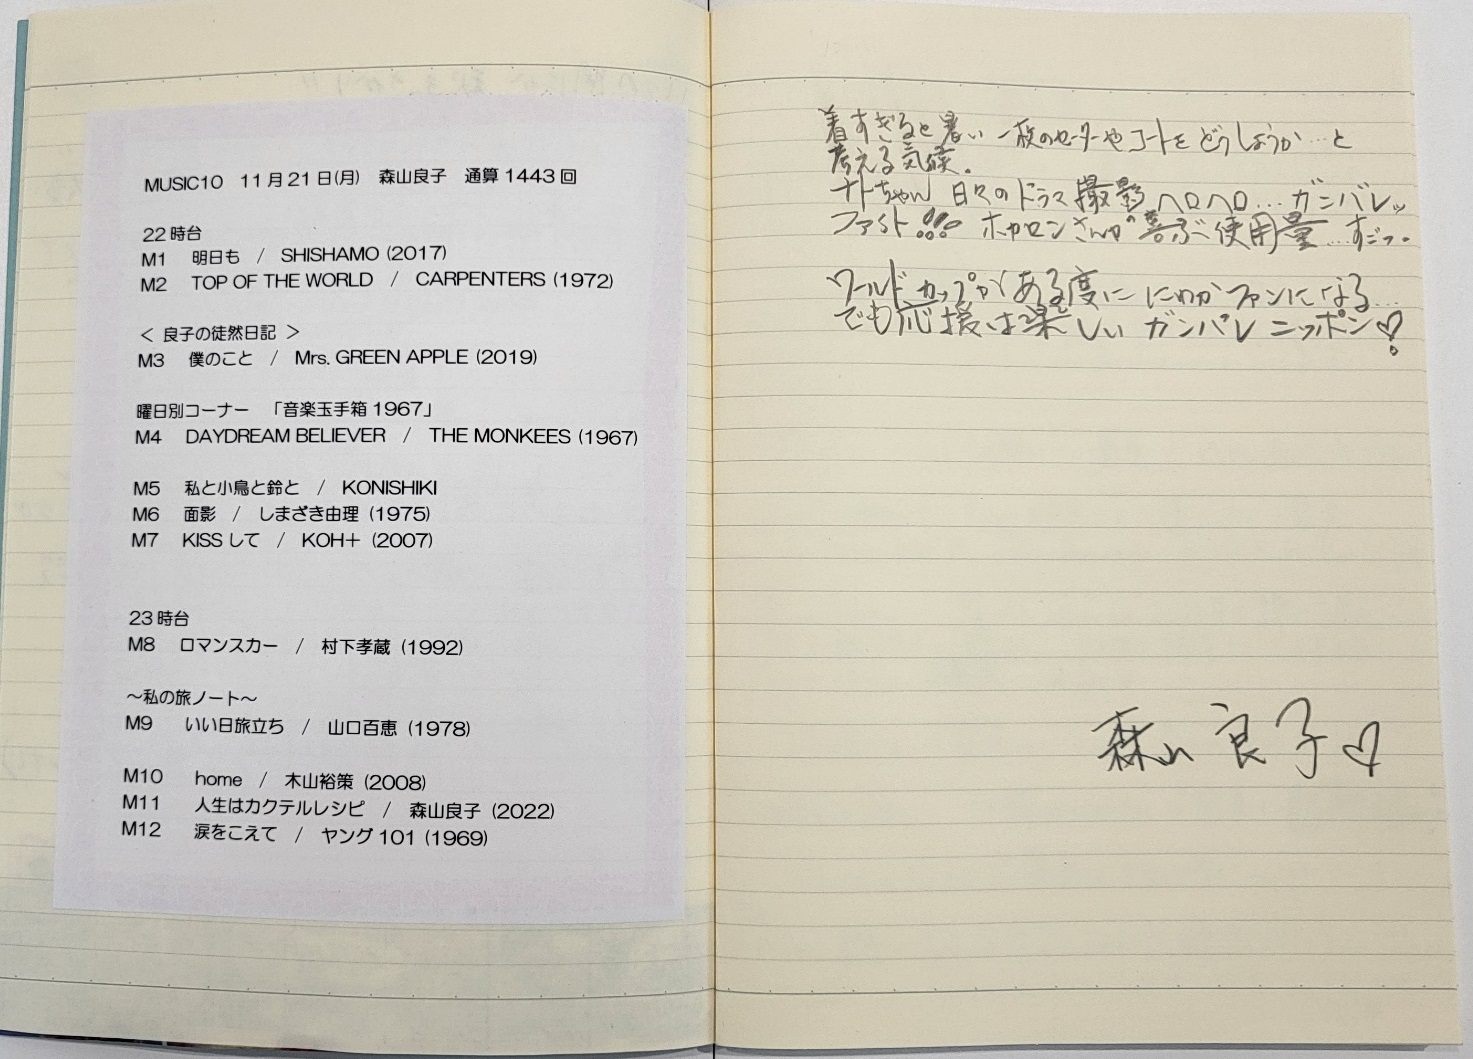 MUSIC10 11月21日(月) 森山良子 通算1443回
22時台
M1 明日も / SHISHAMO (2017)
M2 TOP OF THE WORLD / CARPENTERS (1972)
< 良子の徒然日記 >
M3 僕のこと / Mrs. GREEN APPLE (2019)
曜日別コーナー 「音楽玉手箱1967」
M4 DAYDREAM BELIEVER / THE MONKEES (1967)
M5 私と小鳥と鈴と / KONISHIKI
M6 面影 / しまざき由理 (1975)
M7 KISSして / KOH+ (2007)
23時台
M8 ロマンスカー / 村下孝蔵 (1992)
～私の旅ノート～
M9 いい日旅立ち / 山口百恵 (1978)
M10 home / 木山裕策 (2008)
M11 人生はカクテルレシピ / 森山良子 (2022)
M12 涙をこえて / ヤング101 (1969)
着すぎると暑い 一枚のセーターやコートをどうしようか…と
考える気候。
ナトちゃん 日々のドラマ撮影ヘロヘロ…ガンバレッ
ファイト!!! ホカロンさんが喜ぶ使用量…すごっ。
ワールドカップがある度に にわかファンになる…
でも応援は楽しい ガンバレ ニッポン♡!
森山良子♡